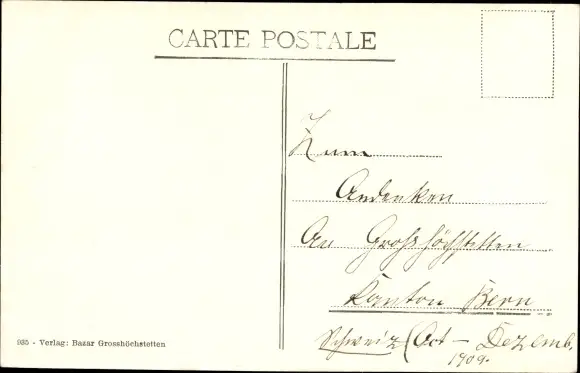 CARTE POSTALE
Zum
Andenken
An Grosshöchstetten
Kanton Bern
Schweiz (Oct - Dezemb.
1909.
935 - Verlag: Bazar Grosshöchstetten